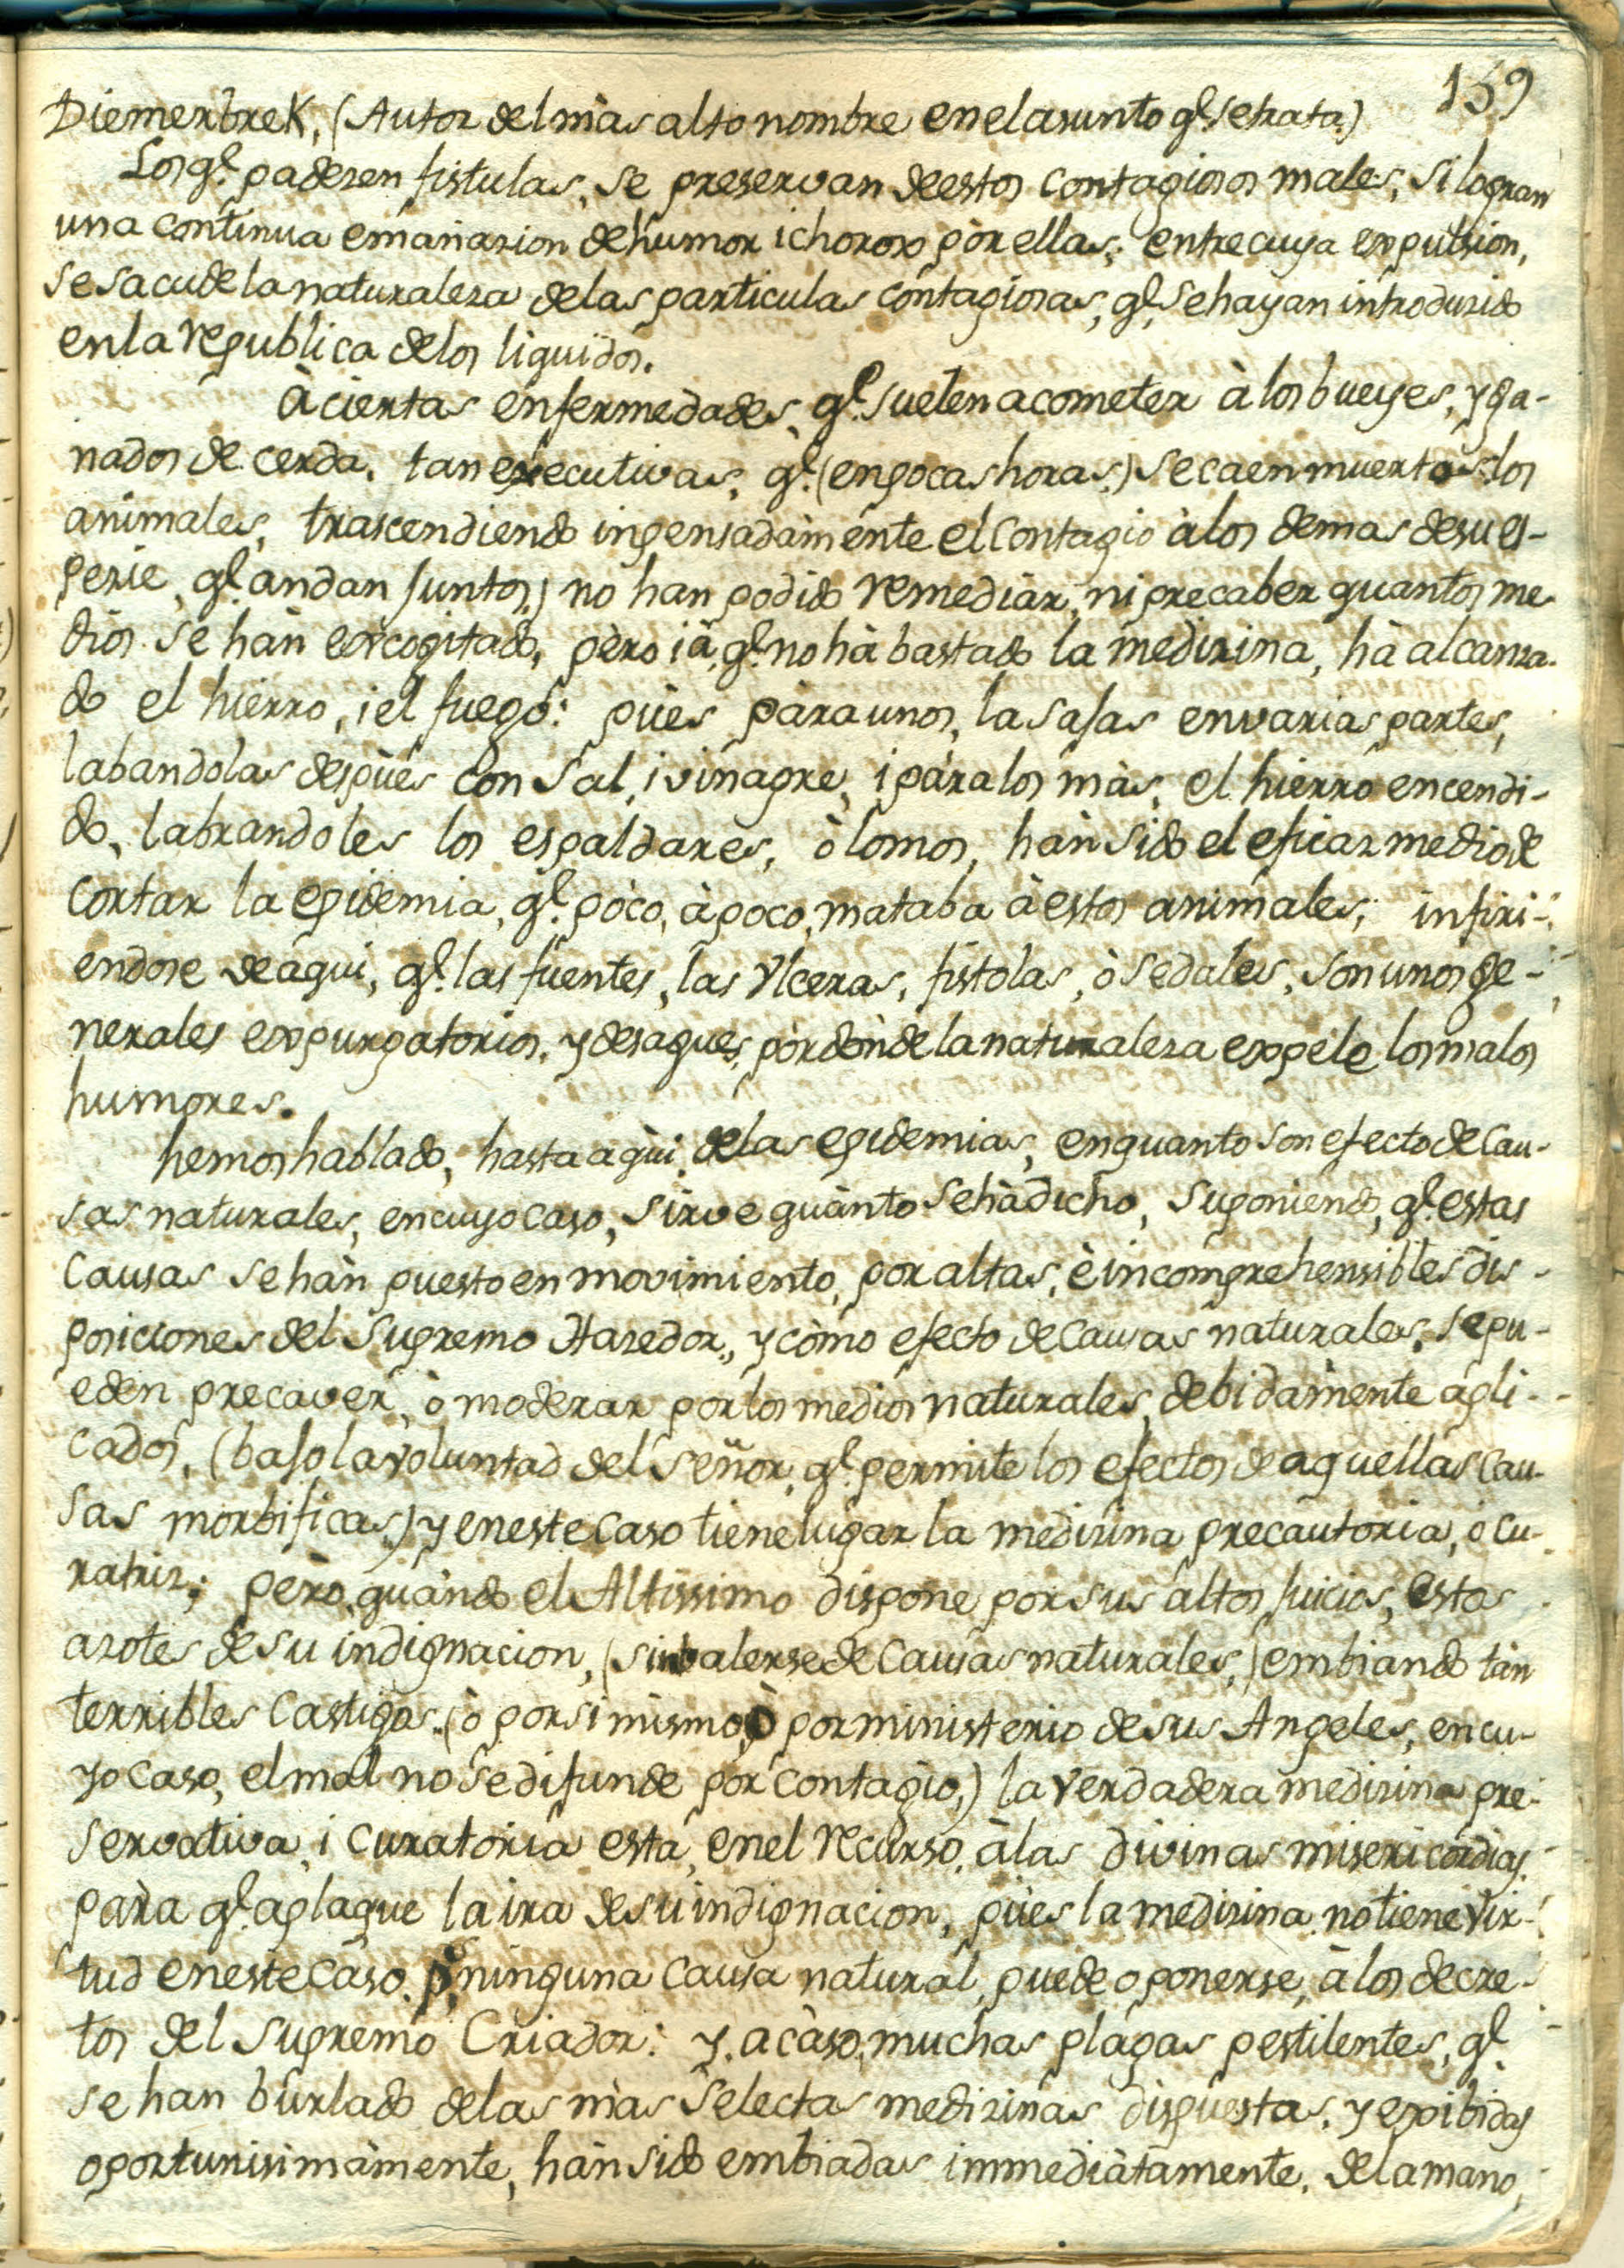 159
Diemerbrek, (Autor del màs alto nombre en el asunto q.e se trata.)
Los q.e padezen fistulas, se preservan de estos contagiosos males, si logran
una continua emanazion de humor ichoroso pòr ellas; entre cuya expulsion,
se sacude la naturaleza de las particulas contagiosas, q.e se hayan introduzido
en la republica de los liquidos.
À ciertas enfermedades, q.e suelen acometer à los bueyes, y ga-
nados de cerda, tan executivas, q.e (en pocas horas,) se caen muertos los
animales, trascendiendo inpensadàmente el contagio à los demas de su es-
pezie, q.e andan juntos,) no han podido remediàr, ni precaber quantos me-
dios se hàn excogitado, pèro ià, q.e no hà bastado la medizina, hà alcanza-
do el hierro, i el fuego: pùes pàra unos, la sajas en varias partes,
labandolas despùes con sal, i vinagre, i pàra los màs, el hierro encendi-
do, labrandoles los espaldares, ò lomos, hàn sido el eficaz medio de
cortar la epidemia, q.e pòco, à poco, mataba à estos animales; infiri-
endose de àqui, q.e las fuentes, las Vlceras, fistolas, ò sedales, son unos ge-
nerales expurgatorios, y desagues, pòr dònde la naturaleza expele los malos
humores.
hemos hablado, hasta aqùi, de las epidemias, en quanto son efecto de cau-
sas naturales, en cuyo caso, sirve quànto se hà dicho, suponiendo, q.e estas
causas se hàn puesto en movimiento, por altas, è incomprehensibles dis-
posiciones del Supremo Hazedor, y còmo efecto de causas naturales, se pu-
eden precaver, ò moderar por los medios naturales, debidàmente apli-
cados, (bajo la voluntad del Señor, q.e permite los efectos de aquellas cau-
sas morbificas) y en este caso tiene lugar la medizina precautoria, ò cu-
ratriz; pèro, quàndo el Altissimo dispone pòr sus altos juicios, estos
azotes de su indignacion, (sin balerse de causas naturales,) embiando tàn
terribles castigos, (ò por si mismo, ò por ministerio de sus Angeles, en cu-
yo caso, el mal no se difunde pòr contagio,) la verdadera medizina pre-
servativa, i curatoria està, en el recurso, à las divinas misericordias,
pàra q.e aplaque la ira de su indignacion, pùes la medizina no tiene vir-
tud en este caso, p.r ninguna causa natural, puede oponerse, à los decre-
tos del Supremo Criador: y acàso, muchas plagas pestilentes, q.e
se han burlado de las màs selectas medizinas dispuestas, y exibidas
oportunisimàmente, hàn sido embiadas immediàtamente, de la mano,